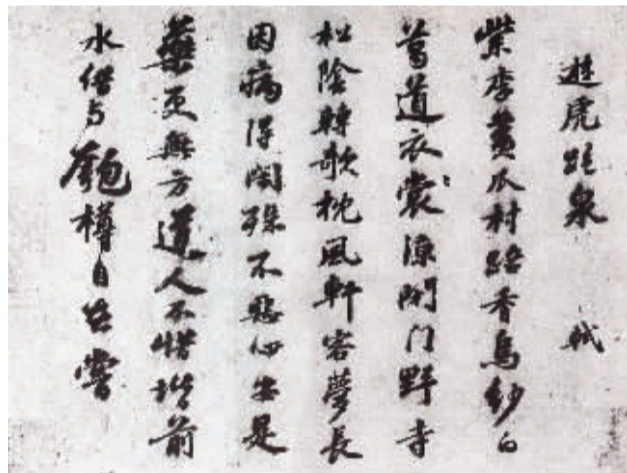 遊虎跑泉 軾
紫李黃瓜村路香烏紗白
葛道衣裳涼閉门野寺
松陰轉欹枕風軒客夢長
因病得閑殊不惡心安是
藥更無方道人不惜堦前
水借与匏樽自在嘗